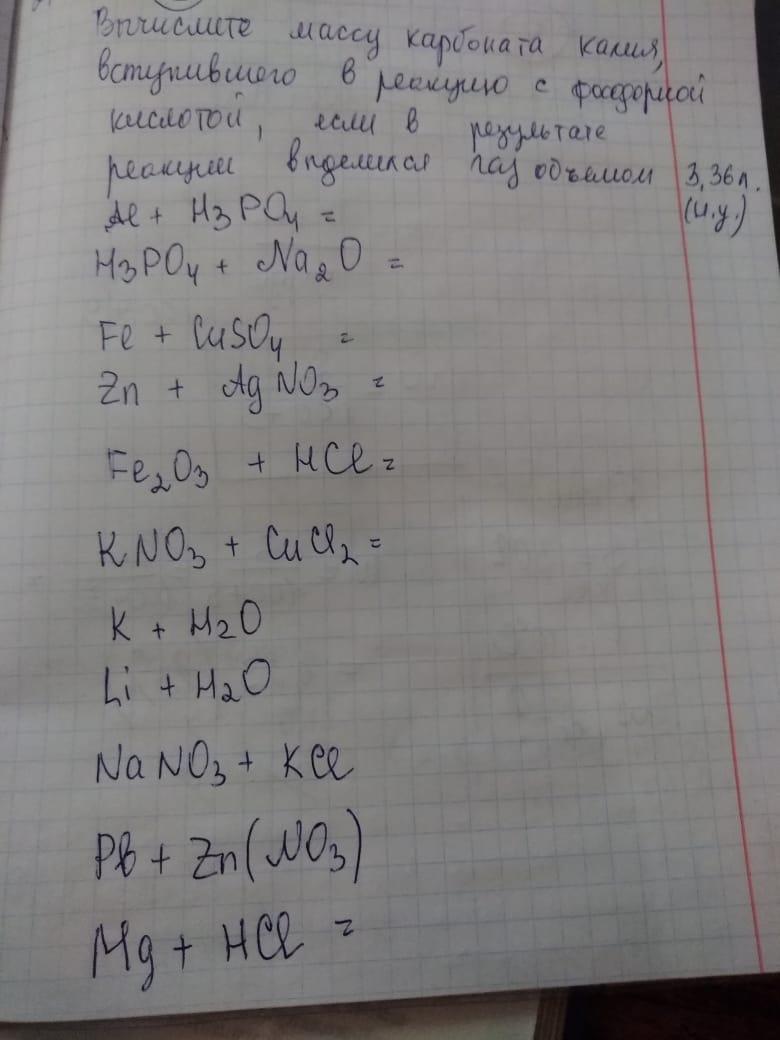 Вычислите массу карбоната калия,
вступившего в реакцию с фосфорной
кислотой, если в результате
реакции выделился газ объемом 3,36л.
(н.у.)
Al + H3PO4 =
H3PO4 + Na2O =
Fe + CuSO4 =
Zn + AgNO3 =
Fe2O3 + HCl =
KNO3 + CuCl2 =
K + H2O
Li + H2O
NaNO3 + KCl
Pb + Zn(NO3)
Mg + HCl =